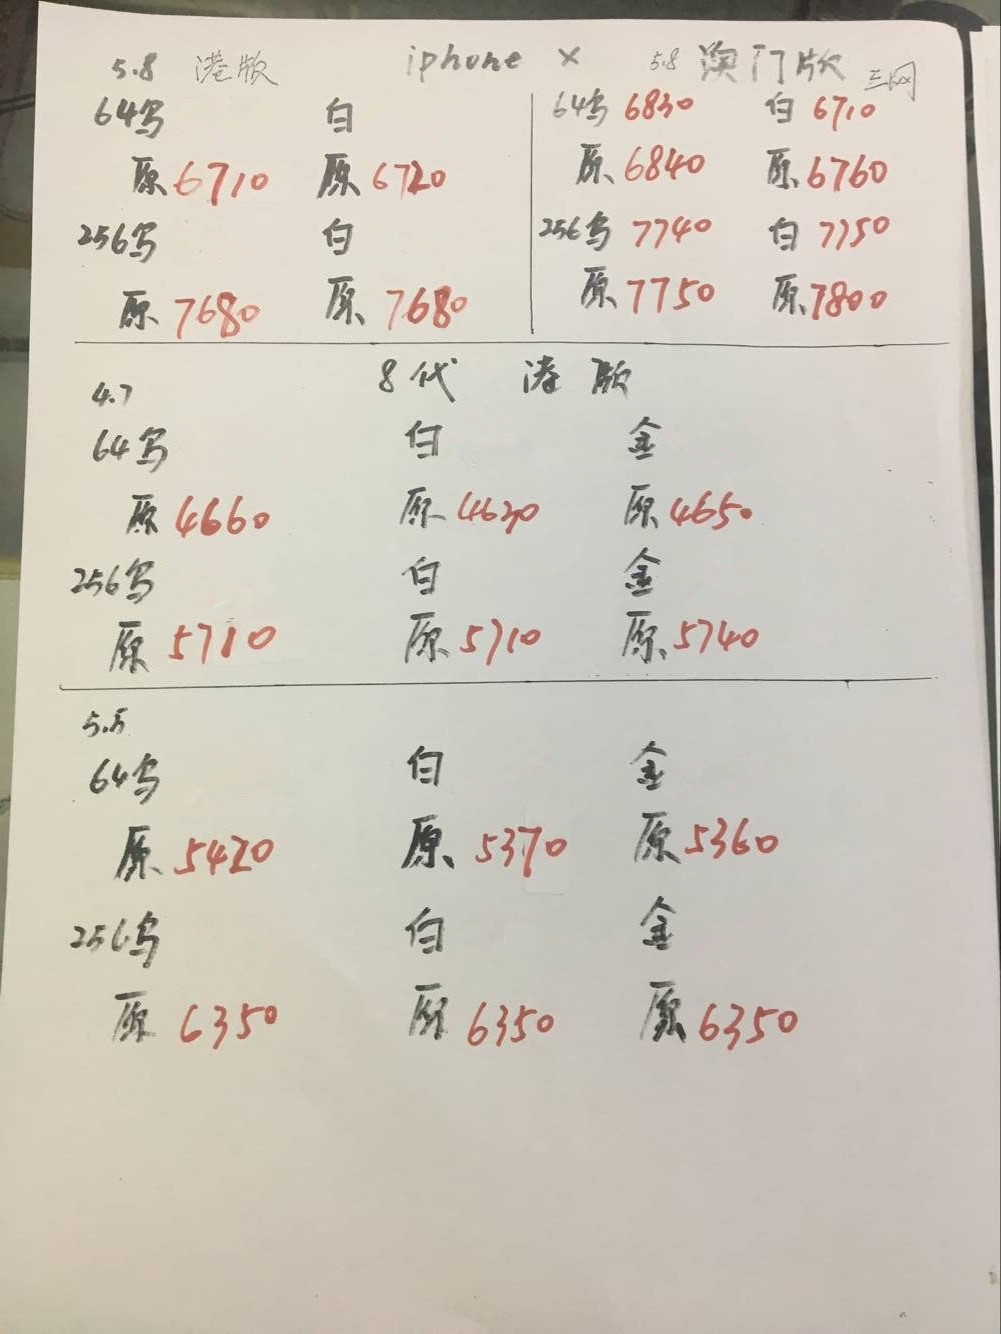 5.8 港版 iphone X 5.8 澳门版 三网
64乌 白
原 6710 原 6720
256乌 白
原 7680 原 7680
64乌 6830 白 6710
原 6840 原 6760
256乌 7740 白 7750
原 7750 原 7800
8代 港版
4.7
64乌 白 金
原 4660 原 4620 原 4650
256乌 白 金
原 5710 原 5710 原 5740
5.5
64乌 白 金
原 5420 原 5370 原 5360
256乌 白 金
原 6350 原 6350 原 6350